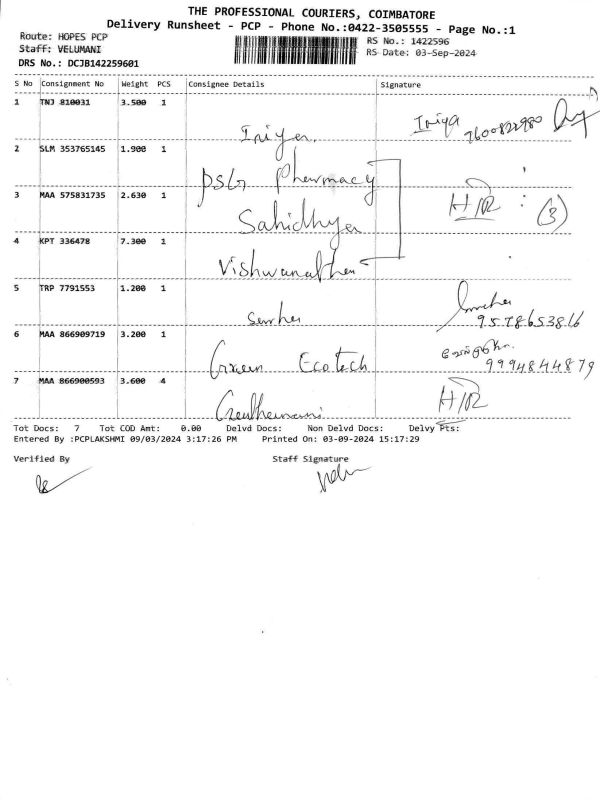 THE PROFESSIONAL COURIERS, COIMBATORE
Delivery Runsheet - PCP - Phone No.:0422-3505555 - Page No.:1
Route: HOPES PCP
RS No.: 1422596
Staff: VELUMANI
RS Date: 03-Sep-2024
DRS No.: DCJB142259601
S No Consignment No Weight PCS Consignee Details Signature
1 TNJ 810031 3.500 1
Iniya Iniya 7600822980
2 SLM 353765145 1.900 1
PSG Pharmacy
3 MAA 575831735 2.630 1 H/R : (3)
Sahidhya
4 KPT 336478 7.300 1
Vishwanathan
5 TRP 7791553 1.200 1
9578653816
6 MAA 866909719 3.200 1
Green Ecotech 9994844879
7 MAA 866900593 3.600 4 H/R
Tot Docs: 7 Tot COD Amt: 0.00 Delvd Docs: Non Delvd Docs: Delvy Pts:
Entered By :PCPLAKSHMI 09/03/2024 3:17:26 PM Printed On: 03-09-2024 15:17:29
Verified By Staff Signature